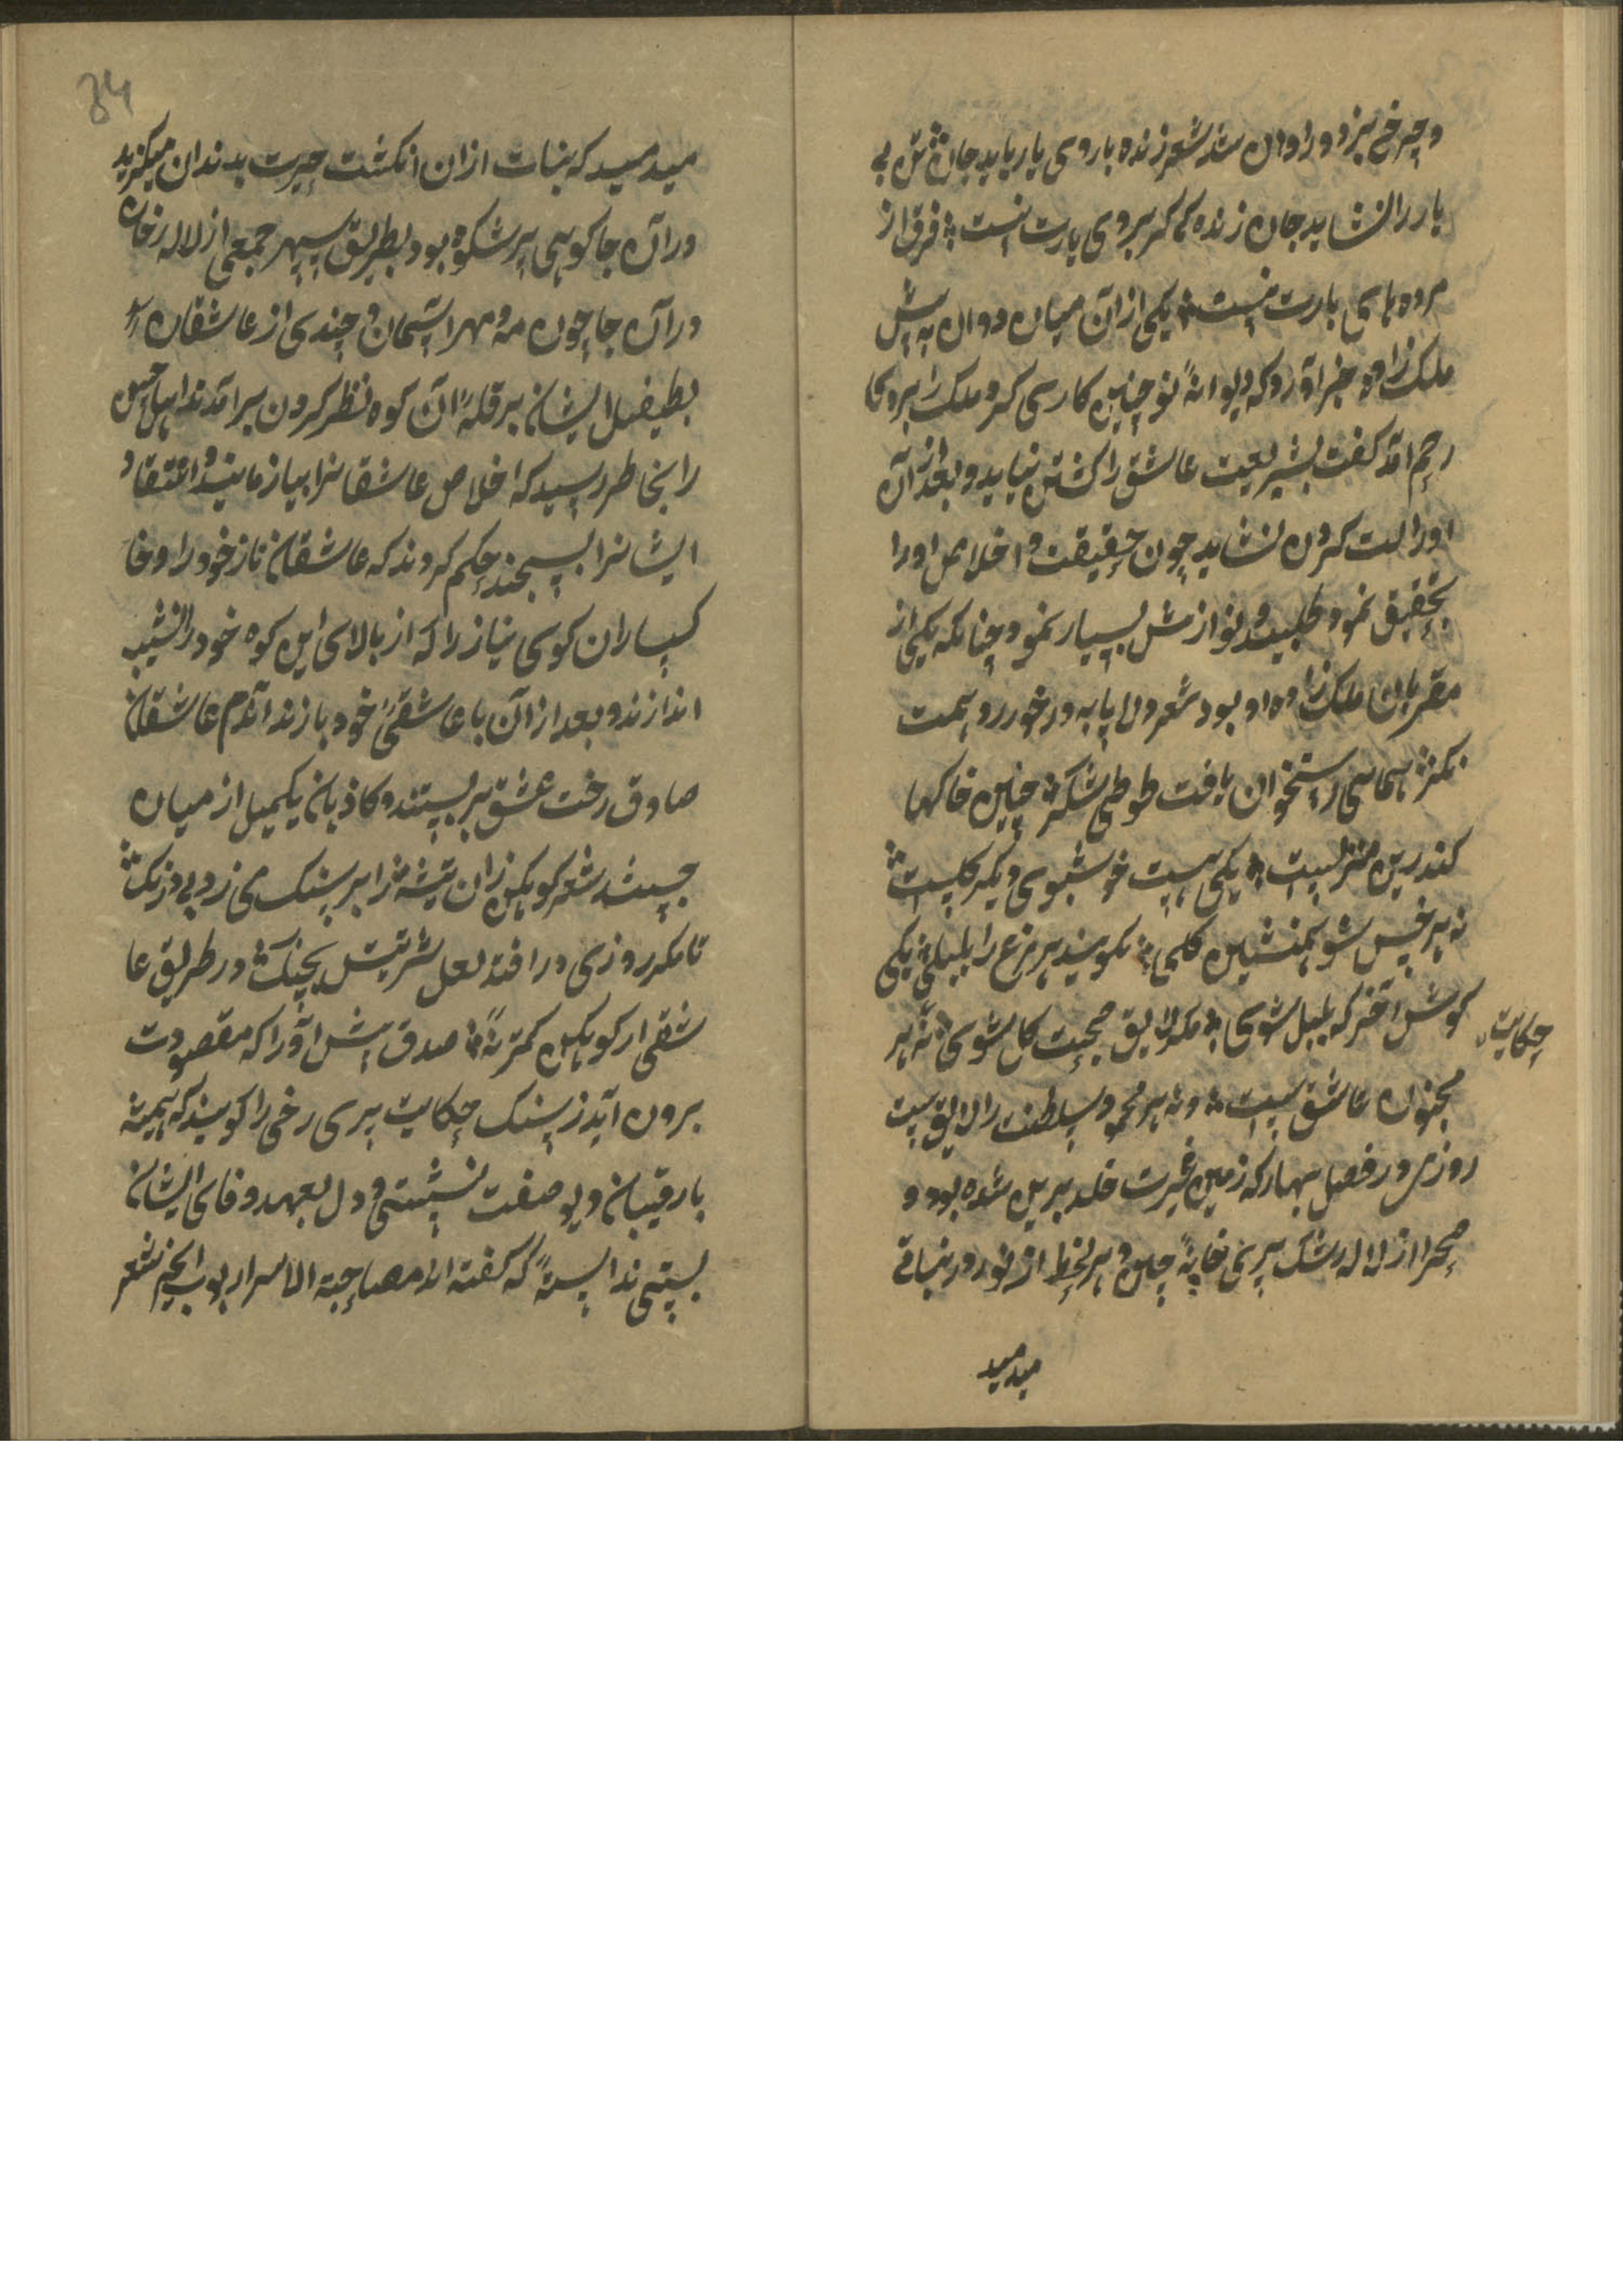 و چرخ نیز دور او ان شد شعر زنده با روی یار باید جان تن بی
یار را نشاید جان زنده کر بروی یارت نیست فرق از
مرده های یارت نیست یکی از آن میان دوان به پیش
ملک زاده خبر آورد که دیوانه تو چنین کاری کرد ملک را برو
رحم آمد کفت بشریعت عاشق را کشتن نیاید و بعد از آن
او را لت کردن نشاید چون حقیقت و اخلاص او را
تحقیق نمود طلبید و نوازش بسیار نمود چنانکه یکی از
مقربان ملک زاده او بود شعر ولا پایه در خور رو همت
نکر همای استخوان یافت طوطی شکر چنین خاکها
کندرین منزلیست یکی هست خوشبوی دیکر کلیست
نه هر خس شو همنشین کلی نکویند هر مرغ را بلبلی یکی
کوش آخر که بلبل شوی مکر لایق صحبت کل شوی نه هر
حکایت
مجنون عاشقیست و نه هر محمود سلطنت را لایقیست
روزی در فصل بهار که زمین غیرت خلد برین شده بود و
صحرا از لاله رشک پری خانه چین و هر لحظه از نو در نباتی
میدمید
34
میدمید که بنات از ان انکشت حیرت بدندان میکزید
در آن جا کوهی پر شکوه بود بطریق سپهر جمعی از لاله رخان
در آن جا چون مه و مهر آسمان و چندی از عاشقان
بطفیل ایشان بر قله آن کوه نظر کردن بر آمدند اهل حسن
را بخاطر رسید که اخلاص عاشقانرا بیازمایند و اعتقاد
ایشانرا بسنجند حکم کردند که عاشقان ناز خود را و خا
کساران کوی نیاز را که از بالای این کوه خود را نشیب
اندازند و بعد از آن با عاشقی خود بازند آندم عاشقان
صادق رخت عشق بر بستند و کاذبان یکمیل از میان
جست شعر کوهکن زان تیشه را بر سنک می زد بی درنک
تا مکر روزی در افتد لعل شرینش بچنک در طریق عا
شقی از کوهکن کمتر نه صدق پیش آور که مقصودت
برون آید ز سنک حکایت پری رخی را کویند که همیشه
با رقیبان دیو صفت نشستی و دل بعهد و وفای ایشان
بستی ندانسته که کفته اند مصاحبة الاسرار شعر